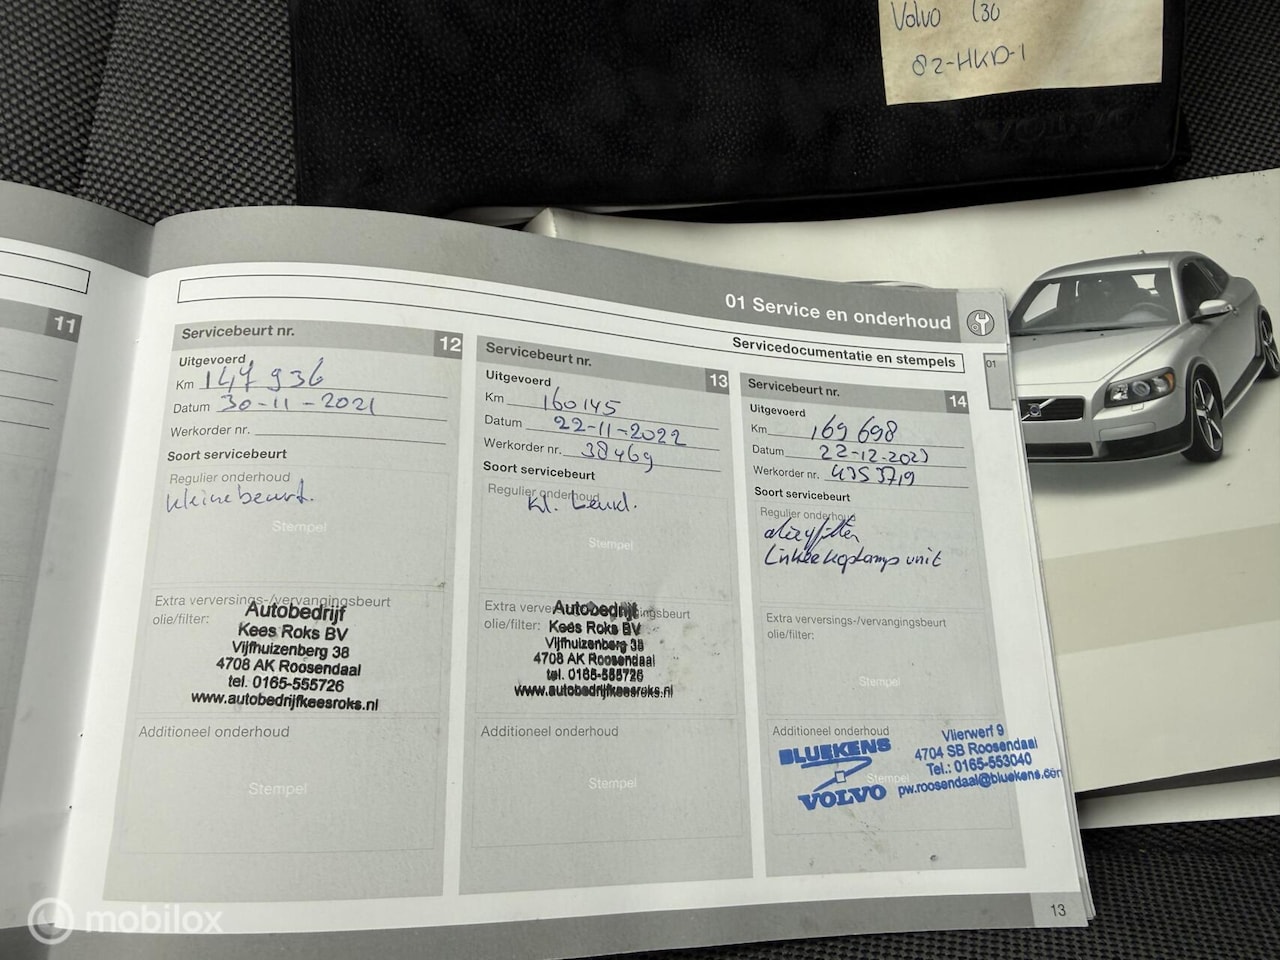 Volvo C30
82-HKD-1
VOLVO
01 Service en onderhoud
01
Servicedocumentatie en stempels
11
Servicebeurt nr. 12
Uitgevoerd
Km 147 936
Datum 30-11-2021
Werkorder nr.
Soort servicebeurt
Regulier onderhoud
kleine beurt.
Stempel
Extra verversings-/vervangingsbeurt
olie/filter:
Autobedrijf
Kees Roks BV
Vijfhuizenberg 38
4708 AK Roosendaal
tel. 0165-555726
www.autobedrijfkeesroks.nl
Additioneel onderhoud
Stempel
Servicebeurt nr. 13
Uitgevoerd
Km 160145
Datum 22-11-2022
Werkorder nr. 38469
Soort servicebeurt
Regulier onderhoud
kl. beurt.
Stempel
Extra verversings-/vervangingsbeurt
olie/filter:
Autobedrijf
Kees Roks BV
Vijfhuizenberg 38
4708 AK Roosendaal
tel. 0165-555726
www.autobedrijfkeesroks.nl
Additioneel onderhoud
Stempel
Servicebeurt nr. 14
Uitgevoerd
Km 169 698
Datum 22-12-2023
Werkorder nr.
Soort servicebeurt
Regulier onderhoud
Linker koplamp unit
Extra ververvsings-/vervangingsbeurt
olie/filter:
Stempel
Additioneel onderhoud
Stempel
BLUEKENS
VOLVO
Vlierwerf 9
4704 SB Roosendaal
Tel.: 0165-553040
pw.roosendaal@bluekens.com
13
mobilox